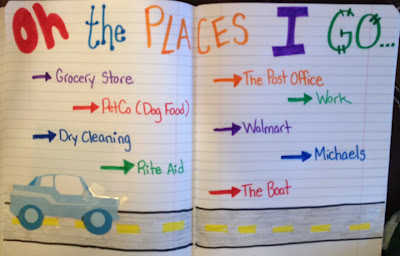 Oh the PLACES I GO...
Grocery Store
PetCo (Dog Food)
Dry Cleaning
Rite Aid
The Post Office
Work
Walmart
Michaels
The Boat